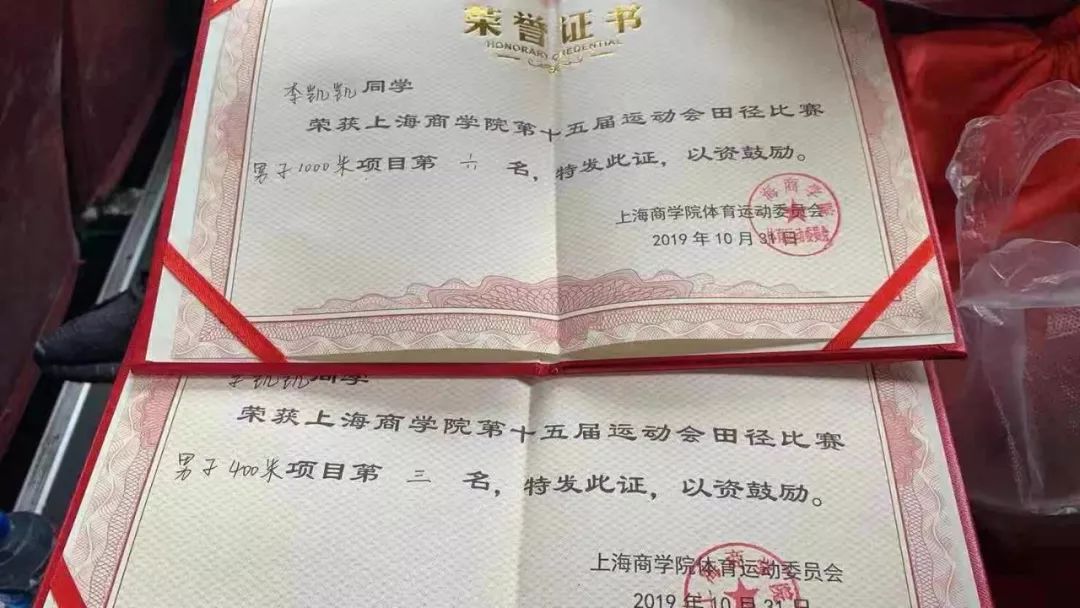 荣誉证书
HONORARY CREDENTIAL
李凯凯同学
荣获上海商学院第十五届运动会田径比赛
男子1000米项目第 六 名，特发此证，以资鼓励。
上海商学院体育运动委员会
2019年10月31日
李凯凯同学
荣获上海商学院第十五届运动会田径比赛
男子400米项目第 三 名，特发此证，以资鼓励。
上海商学院体育运动委员会
2019年10月31日